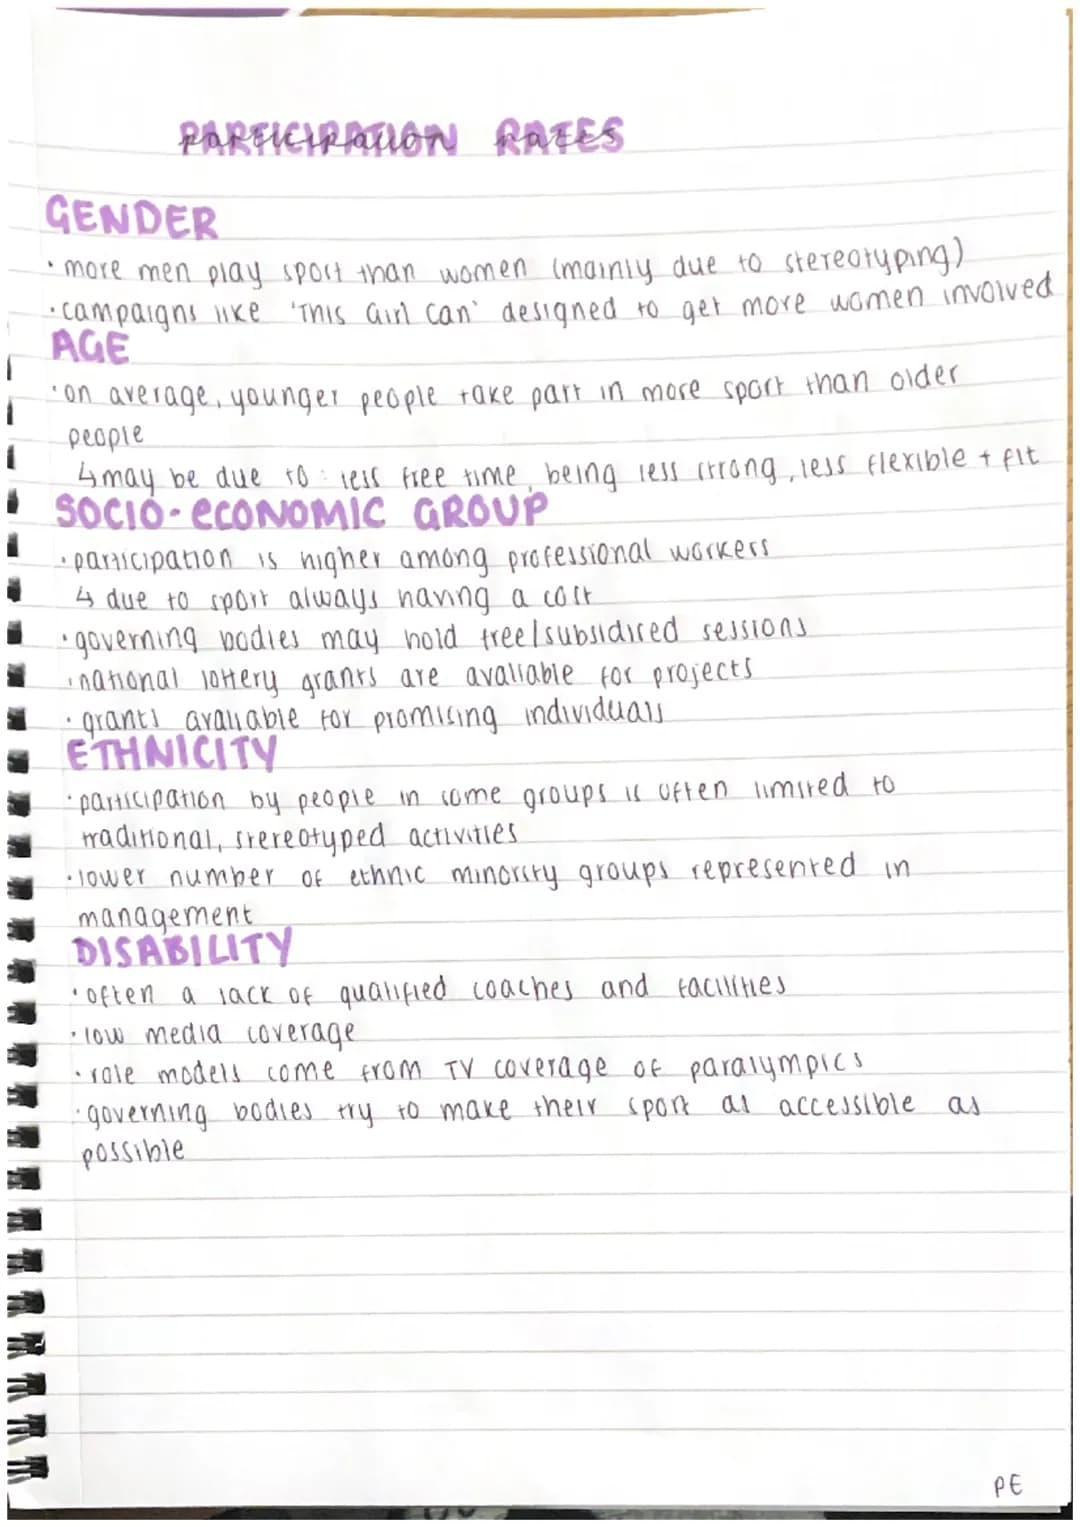 PARTICIPATION RATES
GENDER
· more men play sport than women (mainly due to stereotyping)
· campaigns like 'This Girl Can' designed to get more women involved
AGE
· on average, younger people take part in more sport than older
people
↳ may be due to: less free time, being less strong, less flexible + fit
SOCIO-ECONOMIC GROUP
· participation is higher among professional workers
↳ due to sport always having a cost
· governing bodies may hold free/subsidised sessions
· national lottery grants are avaliable for projects
· grants avaliable for promising individuals
ETHNICITY
· participation by people in some groups is often limited to
traditional, stereotyped activities
· lower number of ethnic minority groups represented in
management
DISABILITY
· often a lack of qualified coaches and facilities
· low media coverage
· role models come from TV coverage of paralympics
· governing bodies try to make their sport as accessible as
possible
PE